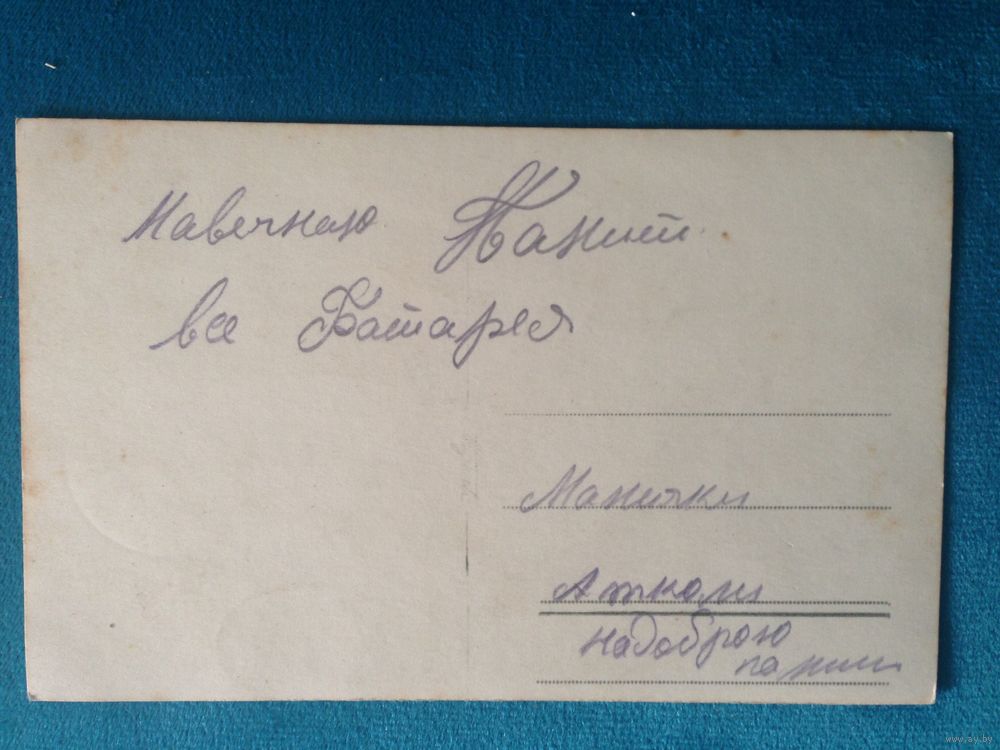 Навечнаю Памит
все Батарея
Манички
Аткали
надоброю
памит
www.ay.by